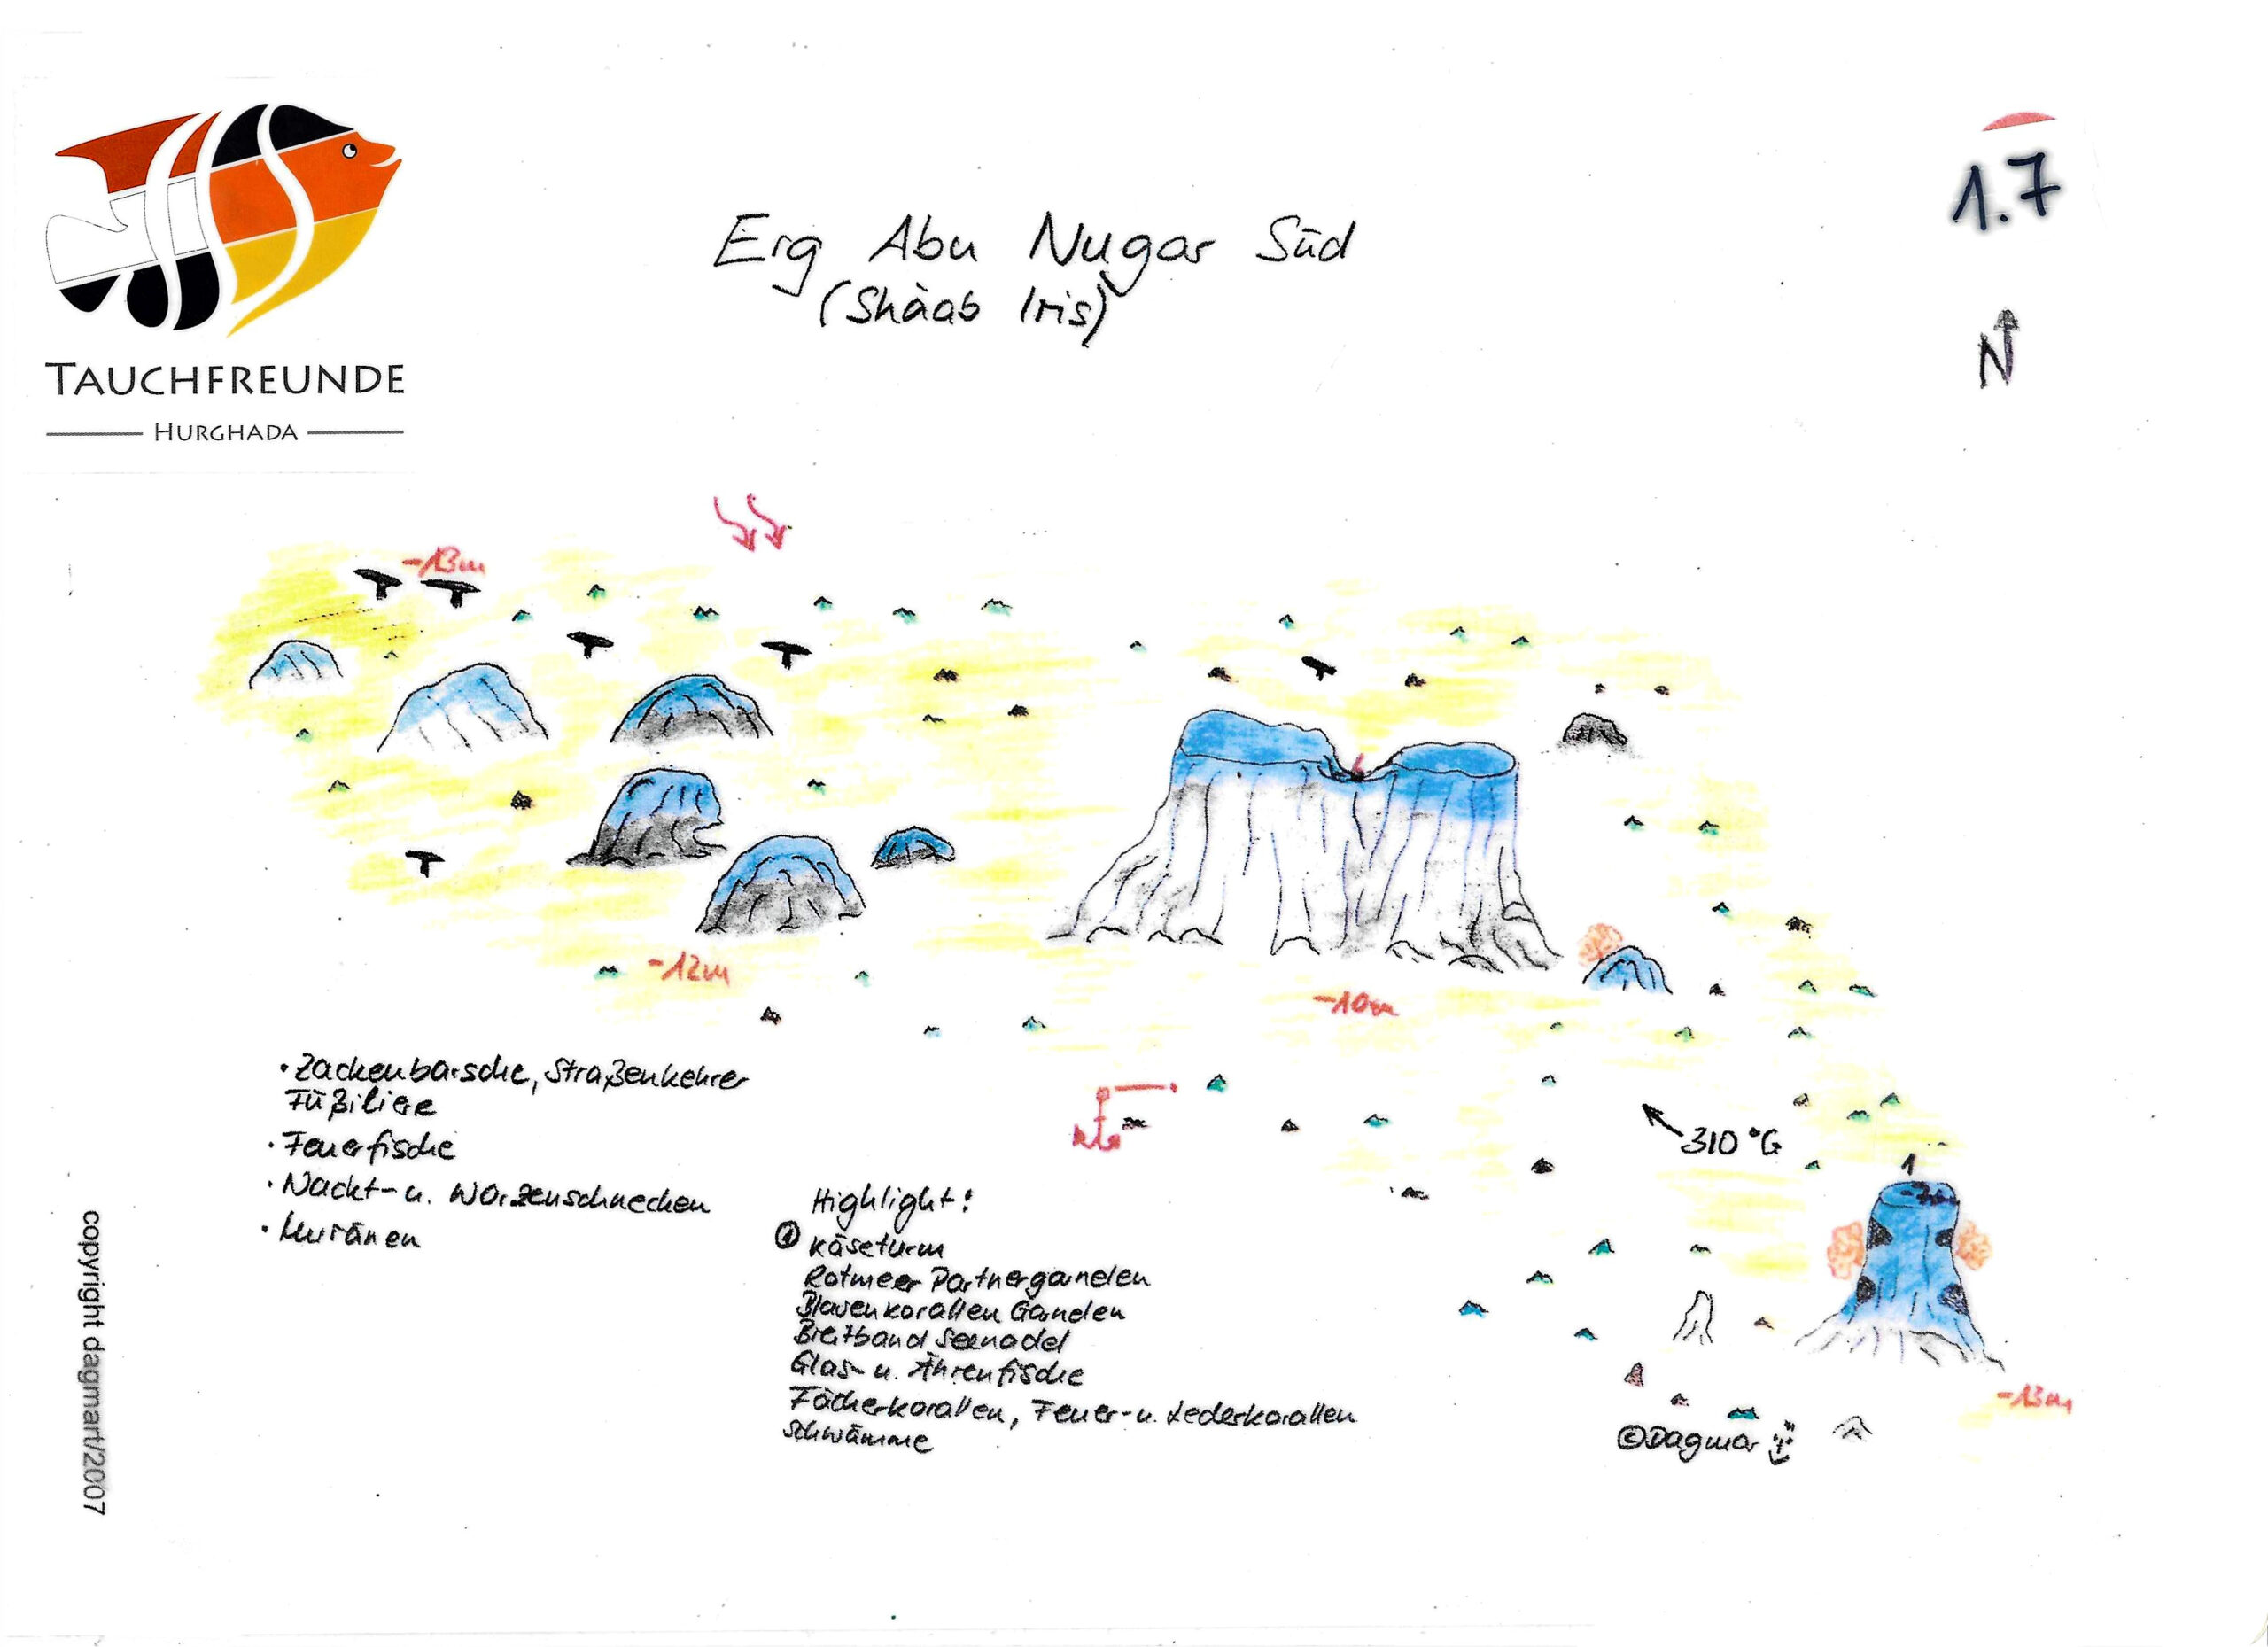 1.7
Erg Abu Nugar Süd
(Shàab Iris)
N
TAUCHFREUNDE
HURGHADA
-13m
6
-12m
-10m
310°G
1
-7m
-13m
• Zackenbarsche, Straßenkehrer
Füßiliere
• Feuerfische
• Nackt- u. Warzenschnecken
• Muränen
Highlight!
① Käseturm
Rotmeer Partnergarnelen
Blasenkorallen Garnelen
Breitband Seenadel
Glas- u. Ährenfische
Fächerkorallen, Feuer- u. Lederkorallen
Schwämme
©Dagmar
copyright dagmart/2007